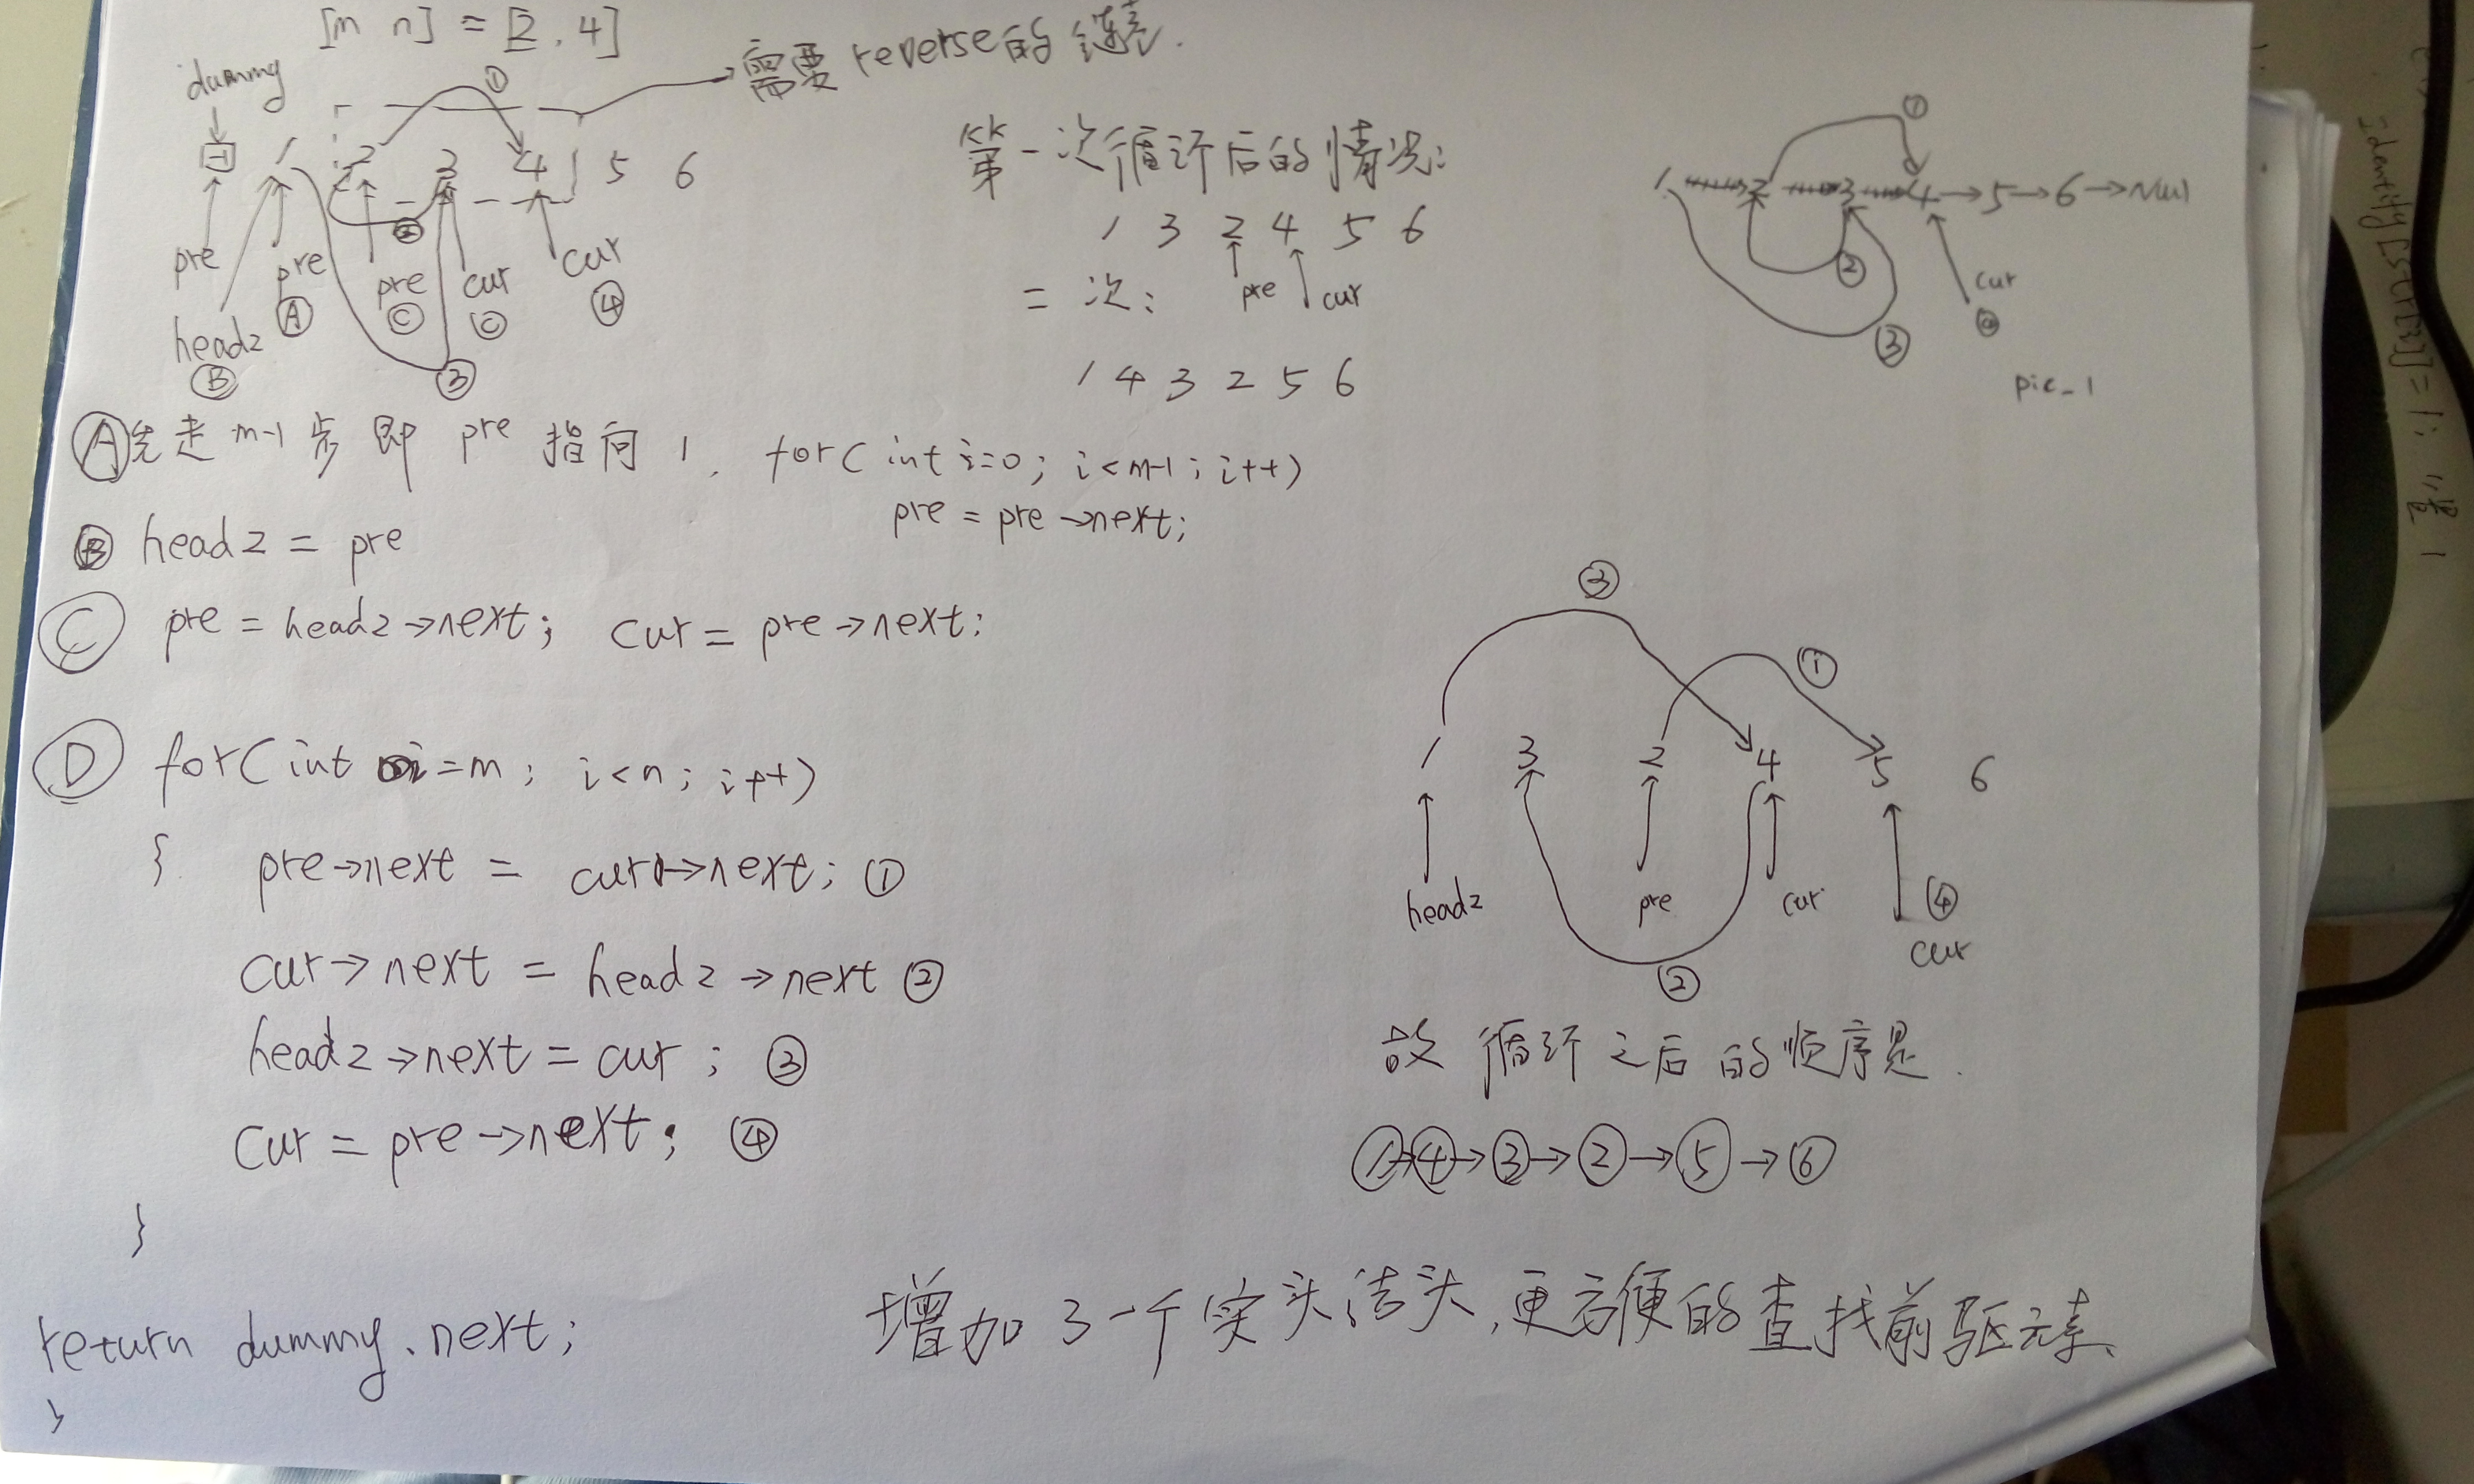 [m n] = [2, 4]
dummy
需要reverse的链表.
①
-1 1 2 3 4 5 6
②
pre
pre
pre
cur
cur
head2
Ⓐ
Ⓒ
Ⓒ
④
Ⓑ
③
第一次循环后的情况:
1 3 2 4 5 6
pre cur
二次:
1 4 3 2 5 6
①
1 2 3 4 → 5 → 6 → Null
②
cur
③
pic_1
Ⓐ先走m-1步 即 pre 指向 1. for( int i=0; i<m-1; i++)
pre = pre →next;
Ⓑ head2 = pre
Ⓒ pre = head2 →next; cur = pre →next;
Ⓓ for( int i=m; i<n; i++)
{ pre→next = cur→next; ①
cur→next = head2 →next ②
head2→next = cur; ③
cur = pre→next; ④
}
return dummy.next;
}
③
①
1 3 2 4 5 6
head2 pre cur ④
cur
②
故 循环之后的顺序是.
①→④→③→②→⑤→⑥
增加了一个实头结头,更方便的查找前驱元素、
Identity[str[i]] = 1; //置1